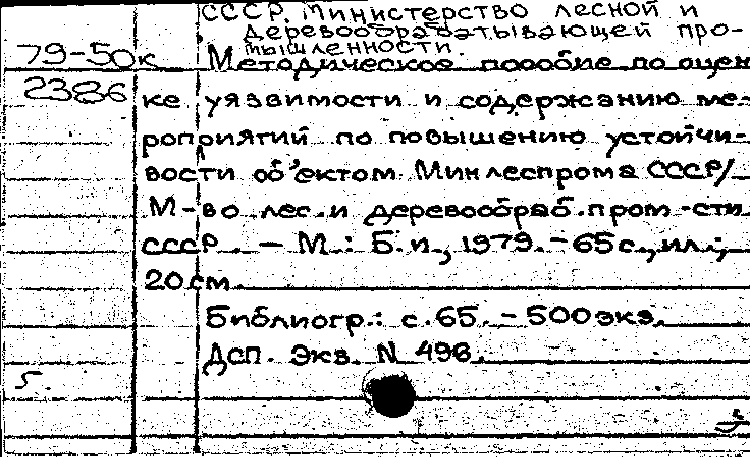 СССР. Министерство лесной и
деревообрабатывающей про-
мышленности.
79-50к Методическое пособие по оцен
2386 ке уязвимости и содержанию ме-
роприятий по повышению устойчи-
вости объектом Минлеспрома СССР/
М-во лес. и деревообраб. пром-сти
СССР. – М.: Б.и., 1979. – 65 с., ил.;
20 см.
Библиогр.: с. 65. – 500 экз.
ДСП. Экз. N 496.
5.